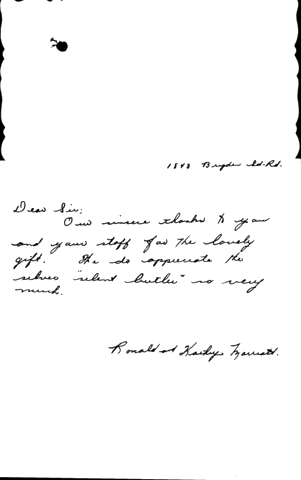 1843 Bryden Rd.
Dear Sir;
Our sincere thanks to you
and your staff for the lovely
gift. We do appreciate the
silver "silent butler" so very
much.
Ronald and Kathy Marriott.